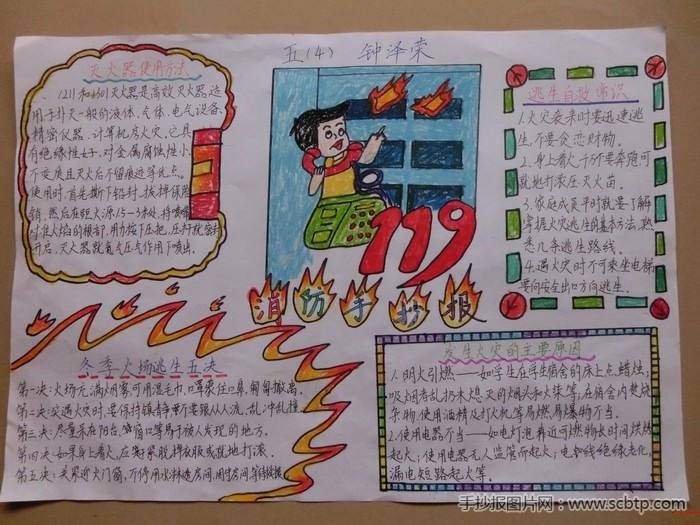 五(4) 钟泽荣
灭火器使用方法
1211和1301灭火器是高效灭火器,适
用于扑灭一般的液体、气体、电气设备、
精密仪器、计算机房火灾。它具
有绝缘性好,对金属腐蚀性小,
不变质且灭火后不留痕迹等优点。
使用时,首先撕下铅封,拔掉保险
销,然后在距火源1.5-3米处,将喷嘴
对准火焰的根部,用力按下压把,压把就会
开启,灭火器就氮气压气作用下喷出。
119
消防手抄报
逃生自救常识
1.火灾袭来时要迅速逃
生,不要贪恋财物。
2.身上着火,千万不要奔跑,可
就地打滚压灭火苗。
3.家庭成员平时就要了解
掌握火灾逃生的基本方法,熟
悉几条逃生路线。
4.遇火灾时不可乘坐电梯,
要向安全出口方向逃生。
冬季火场逃生五决
第一决:火场充满烟雾,可用湿毛巾,口罩蒙住口鼻,匍匐撤离。
第二决:突遇火灾时,要保持镇静,千万不要跟从人流,乱冲乱撞。
第三决:尽量呆在阳台、窗口等易于被人发现的地方。
第四决:如果身上着火,应赶紧脱掉衣服或就地打滚。
第五决:关紧迎火门窗,
发生火灾的主要原因
1.明火引燃——如学生在学生宿舍的床上点蜡烛;
吸烟者乱扔未熄灭的烟头和火柴等;在宿舍内焚烧
杂物;使用油精及打火机等易燃、易爆物不当。
2.使用电器不当——如电灯泡靠近可燃物长时间烘烤
起火;使用电器无人监管而起火;电如线绝缘老化,
漏电短路起火等。
手抄报图片网 www.scbtp.com